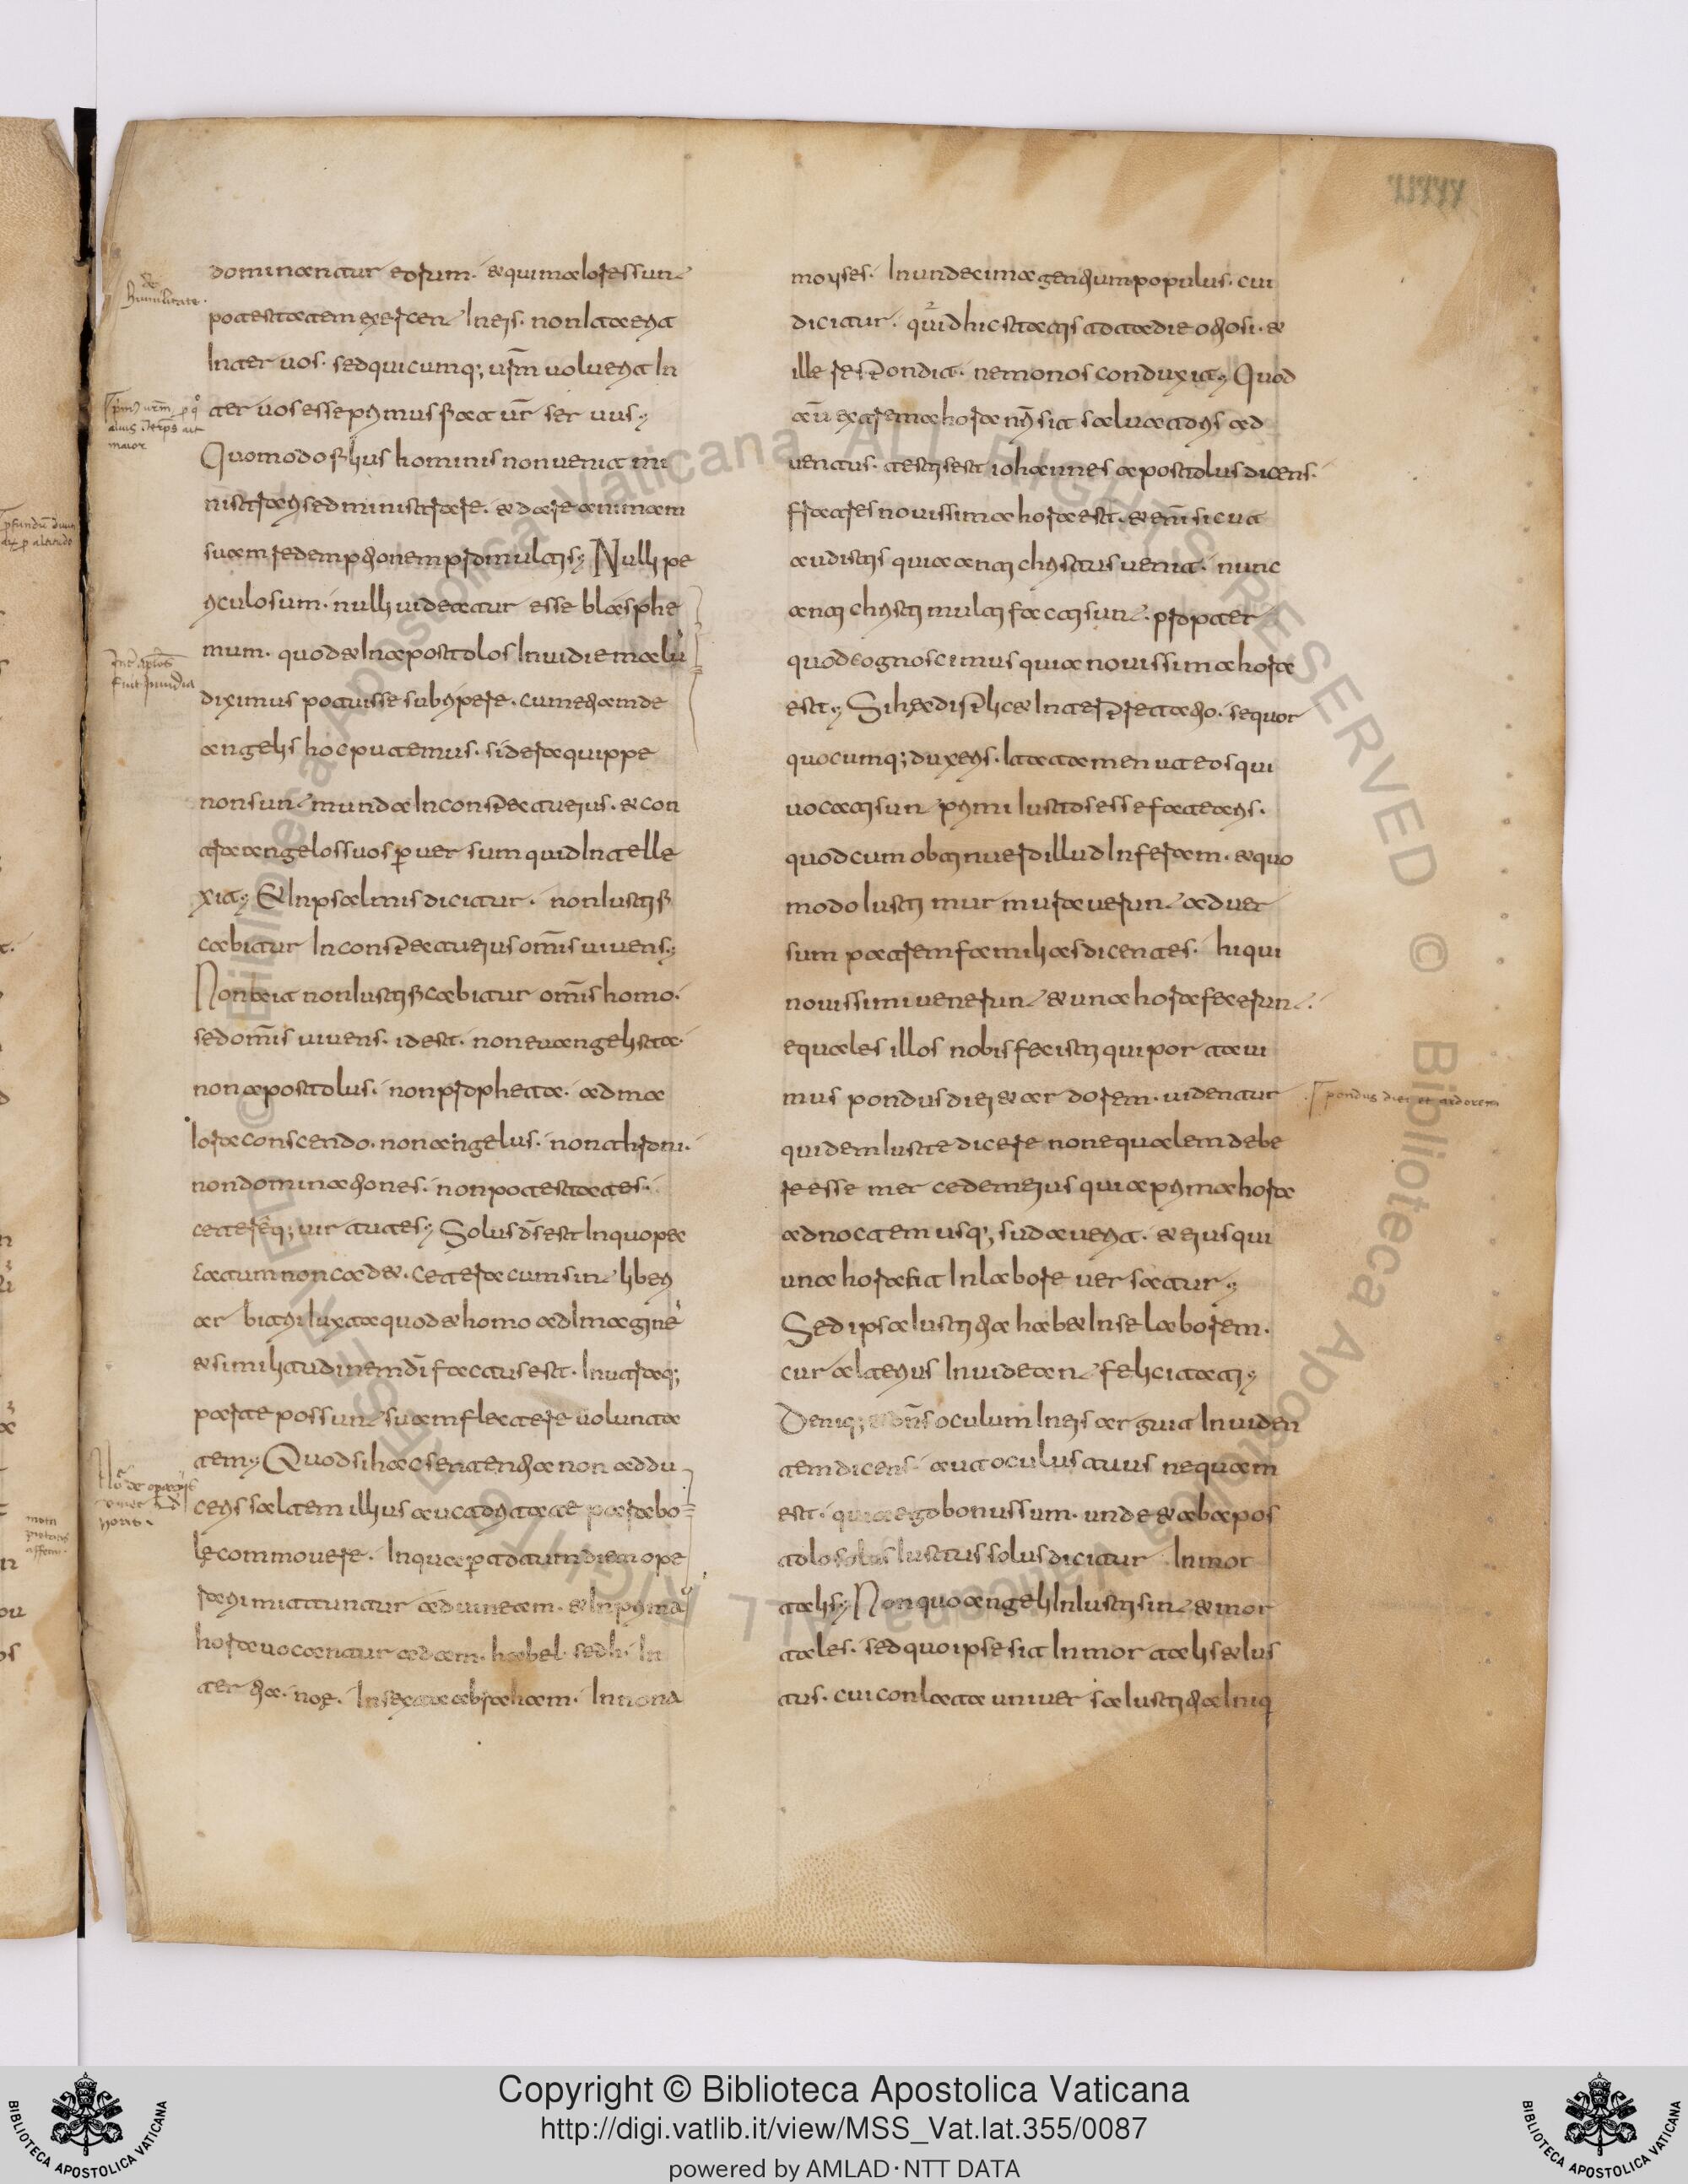 dominantur eorum · & qui maiores sunt
potestatem exercent In eis · non Ita erit
Inter vos · sed quicumq; v̄rm voluerit In
ter vos esse primus fiat vr̄ ser vus ;
Quomodo filius hominis non venit mi
nistrari sed ministrare · & dare animam
suam redemptionem pro multis ; Nulli pe
riculosum · nulli videatur esse blasphe
mum · quod & In apostolos Invidiae malū
diximus potuisse subripere · cum etiam de
angelis hoc putemus · sidera quippe
non sunt munda In consp̄ectu eius · & con
tra angelos suos p̱ver sum quid Intelle
xit ; & In psalmis dicitur · non Iustifi
cabitur In consp̄ectu eius om̄is vivens ;
Non ait non Iustificabitur om̄is homo ·
sed om̄is vivens · id est · non evangelista ·
non apostolus · non propheta · ad ma
iora conscendo · non angelus · non throni ·
non dominationes · non potestates ·
ceterēq; vir tutes ; Solus d̄s est In quo pec
catum non cadet · Cetera cum sint liberi
ar bitrii Iuxta quod & homo ad Imaginē
& similitudinem d̄i factus est · In utraq;
parte possunt suam flectere volunta
tem ; Quod si hac sententia non addu
ceris saltem illius auctoritate parabo
le commovere · In qua p̱ totum diem ope
rarii mittuntur ad vineam · & In prima
hora vocantur adam · habel · sedh · In
ter tia · noe · In sexta abraham · In nona
moyses · In undecima gentium populus · cui
dicitur · quid hic statis tota die otiosi · &
ille resp̄ondit · nemo nos conduxit ; Quod
aū extrema hora nr̄i sit salvatoris ad
ventus · testis est iohannes apostolus dicens ·
fratres novissima hora est · & enī sicut
audistis quia anti christus venit · nunc
anti christi multi facti sunt · propter
quod cognoscimus quia novissima hora
est ; Si hec disp̄licet Interp̄retatio · sequor
quocumq; duxeris · Ita tamen ut eos qui
vocati sunt primi Iustos esse fatearis ·
quod cum obtinuero illud Inferam · & quo
modo Iusti mur muraverunt adver
sum patrem familias dicentes · hi qui
novissimi venerunt & una hora fecerunt ·
equales illos nobis fecisti qui por tavi
mus pondus diei & ar dorem · videntur
quidem Iuste dicere non equalem debe
re esse mer cedem eius qui a prima hora
ad noctem usq; sudaverit · & eius qui
una hora fit In labore ver satur ;
Sed ipsa Iustitia habet In se laborem ·
cur alterius Invideant felicitati ;
Deniq; & dn̄s oculum In eis ar guit Inviden
tem dicens · aut oculus tuus nequam
est · quia ego bonus sum · unde & ab apos
tolo solus Iustus solus dicitur In mor
talis ; Non quo angeli InIusti sint & mor
tales · sed quo ipse sit In mor talis & Ius
tus · cui conlata univer sa Iustitia Iniq
de
humilitate ·
maior
pondus diei et ardorem
Copyright © Biblioteca Apostolica Vaticana
http://digi.vatlib.it/view/MSS_Vat.lat.355/0087
powered by AMLAD·NTT DATA
BIBLIOTECA APOSTOLICA VATICANA
BIBLIOTECA APOSTOLICA VATICANA